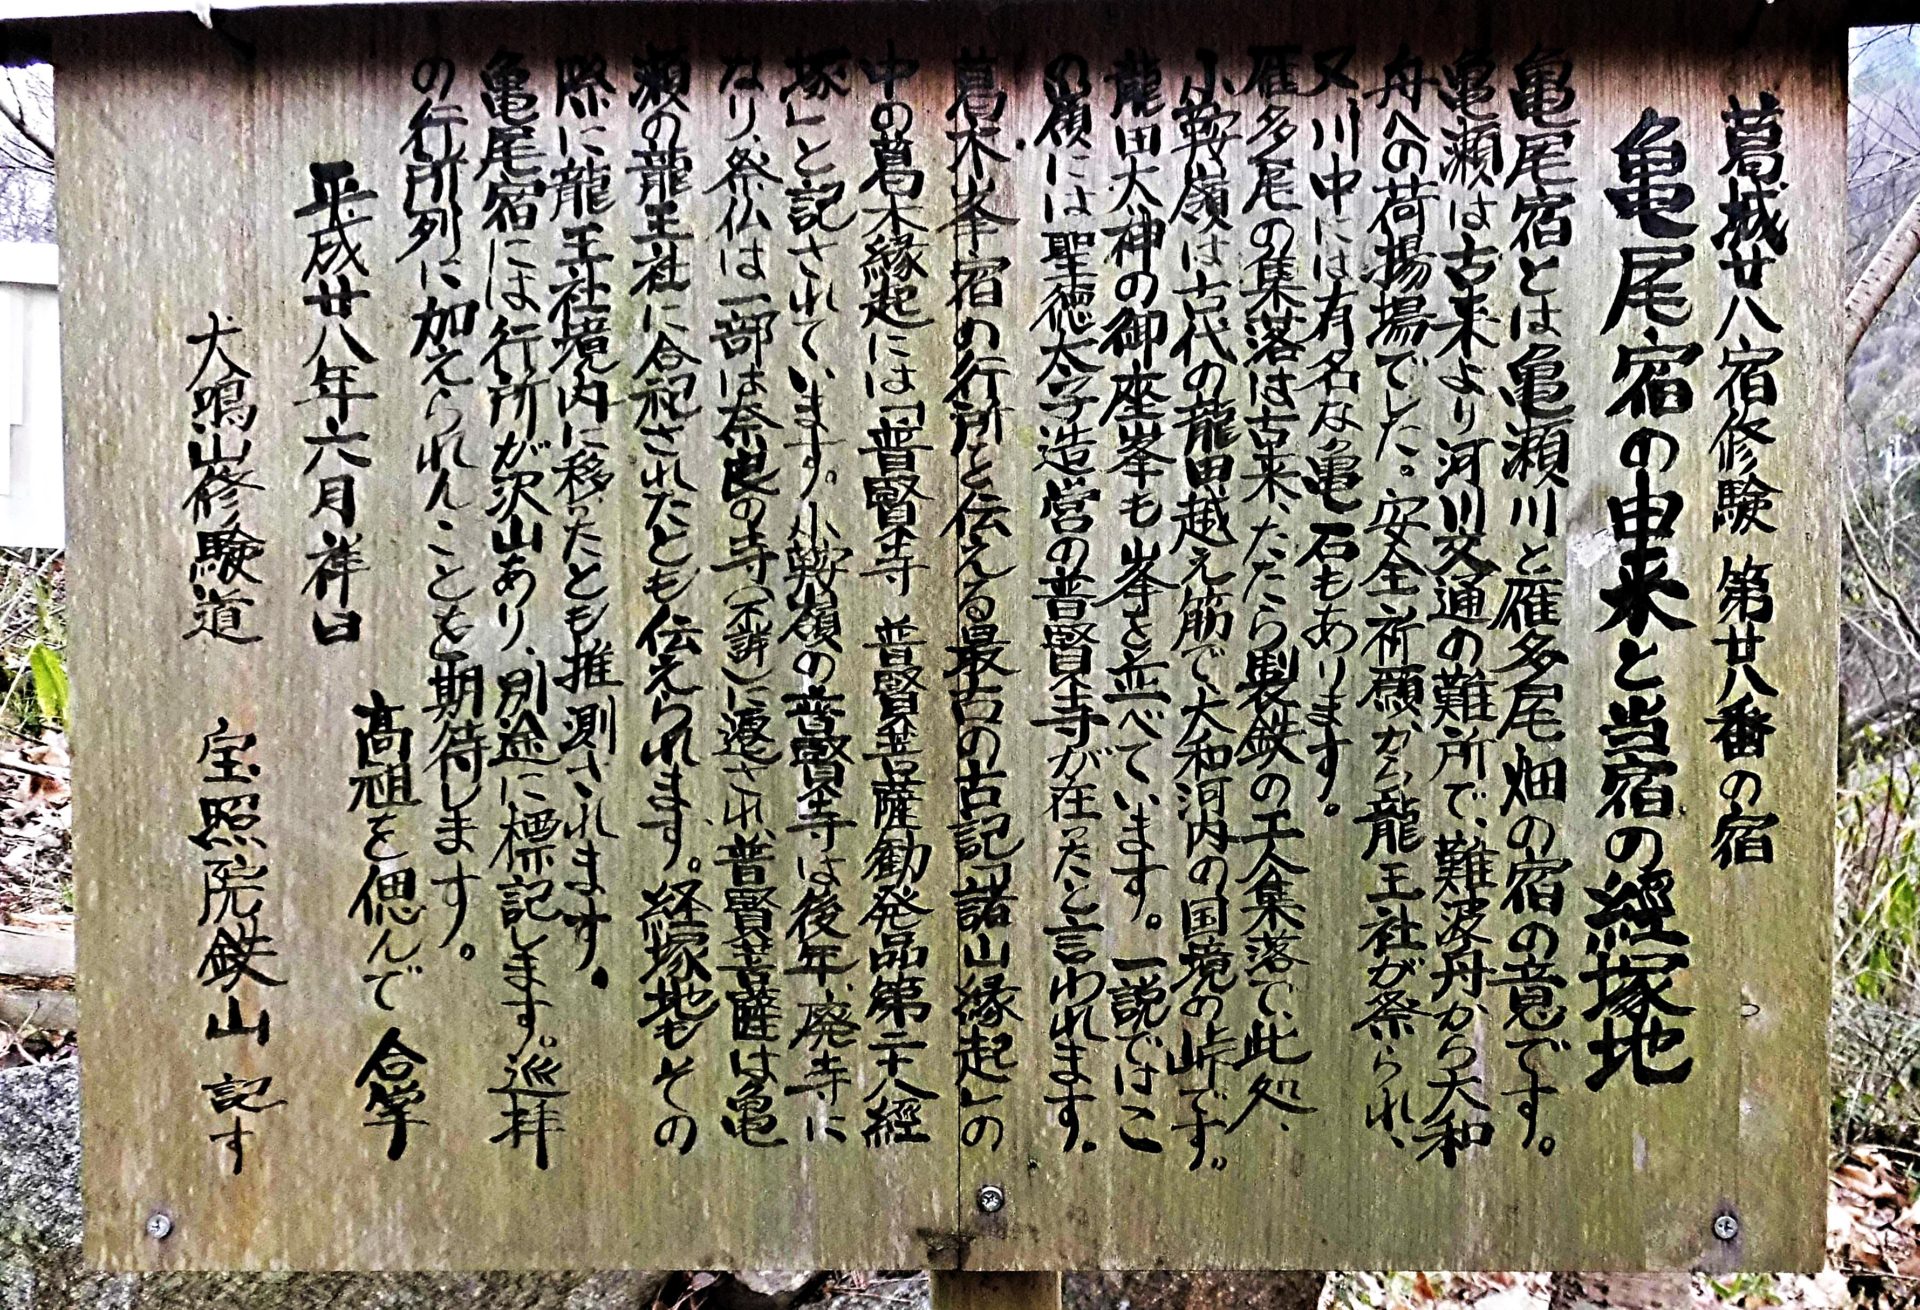 葛城廿八宿修験 第廿八番の宿
亀尾宿の由来と当宿の經塚地
亀尾宿とは亀瀬川と雁多尾畑の宿の意です。
亀瀬は古来より河川交通の難所で、難波舟から大和
舟への荷揚場でした。安全祈願から龍王社が祭られ、
又川中には有名な亀石もあります。
雁多尾の集落は古来、たたら製鉄の工人集落で、此処、
小鞍嶺は古代の龍田越え筋で、大和河内の国境の峠です。
龍田大神の御座峯も峯を並べています。一説ではこ
の嶺には聖徳太子造営の普賢寺が在ったと言われます。
葛木峯宿の行所を伝える最古の古記「諸山縁起」の
中の葛木縁起には「普賢寺 普賢菩薩勧発品第二十八經
塚」と記されています。小鞍嶺の普賢寺は後年、廃寺に
なり、祭仏は一部は奈良の寺（不詳）に遷され、普賢菩薩は亀
瀬の龍王社に合祀されたとも伝えられます。経塚地もその
際に龍王社境内に移ったとも推測されます。
亀尾宿には行所が沢山あり、別途に標記します。巡拝
の行所列に加えられんことを期待します。
高祖を偲んで 合掌
平成廿八年六月祥日
犬鳴山修験道 宝照院鉄山 記す